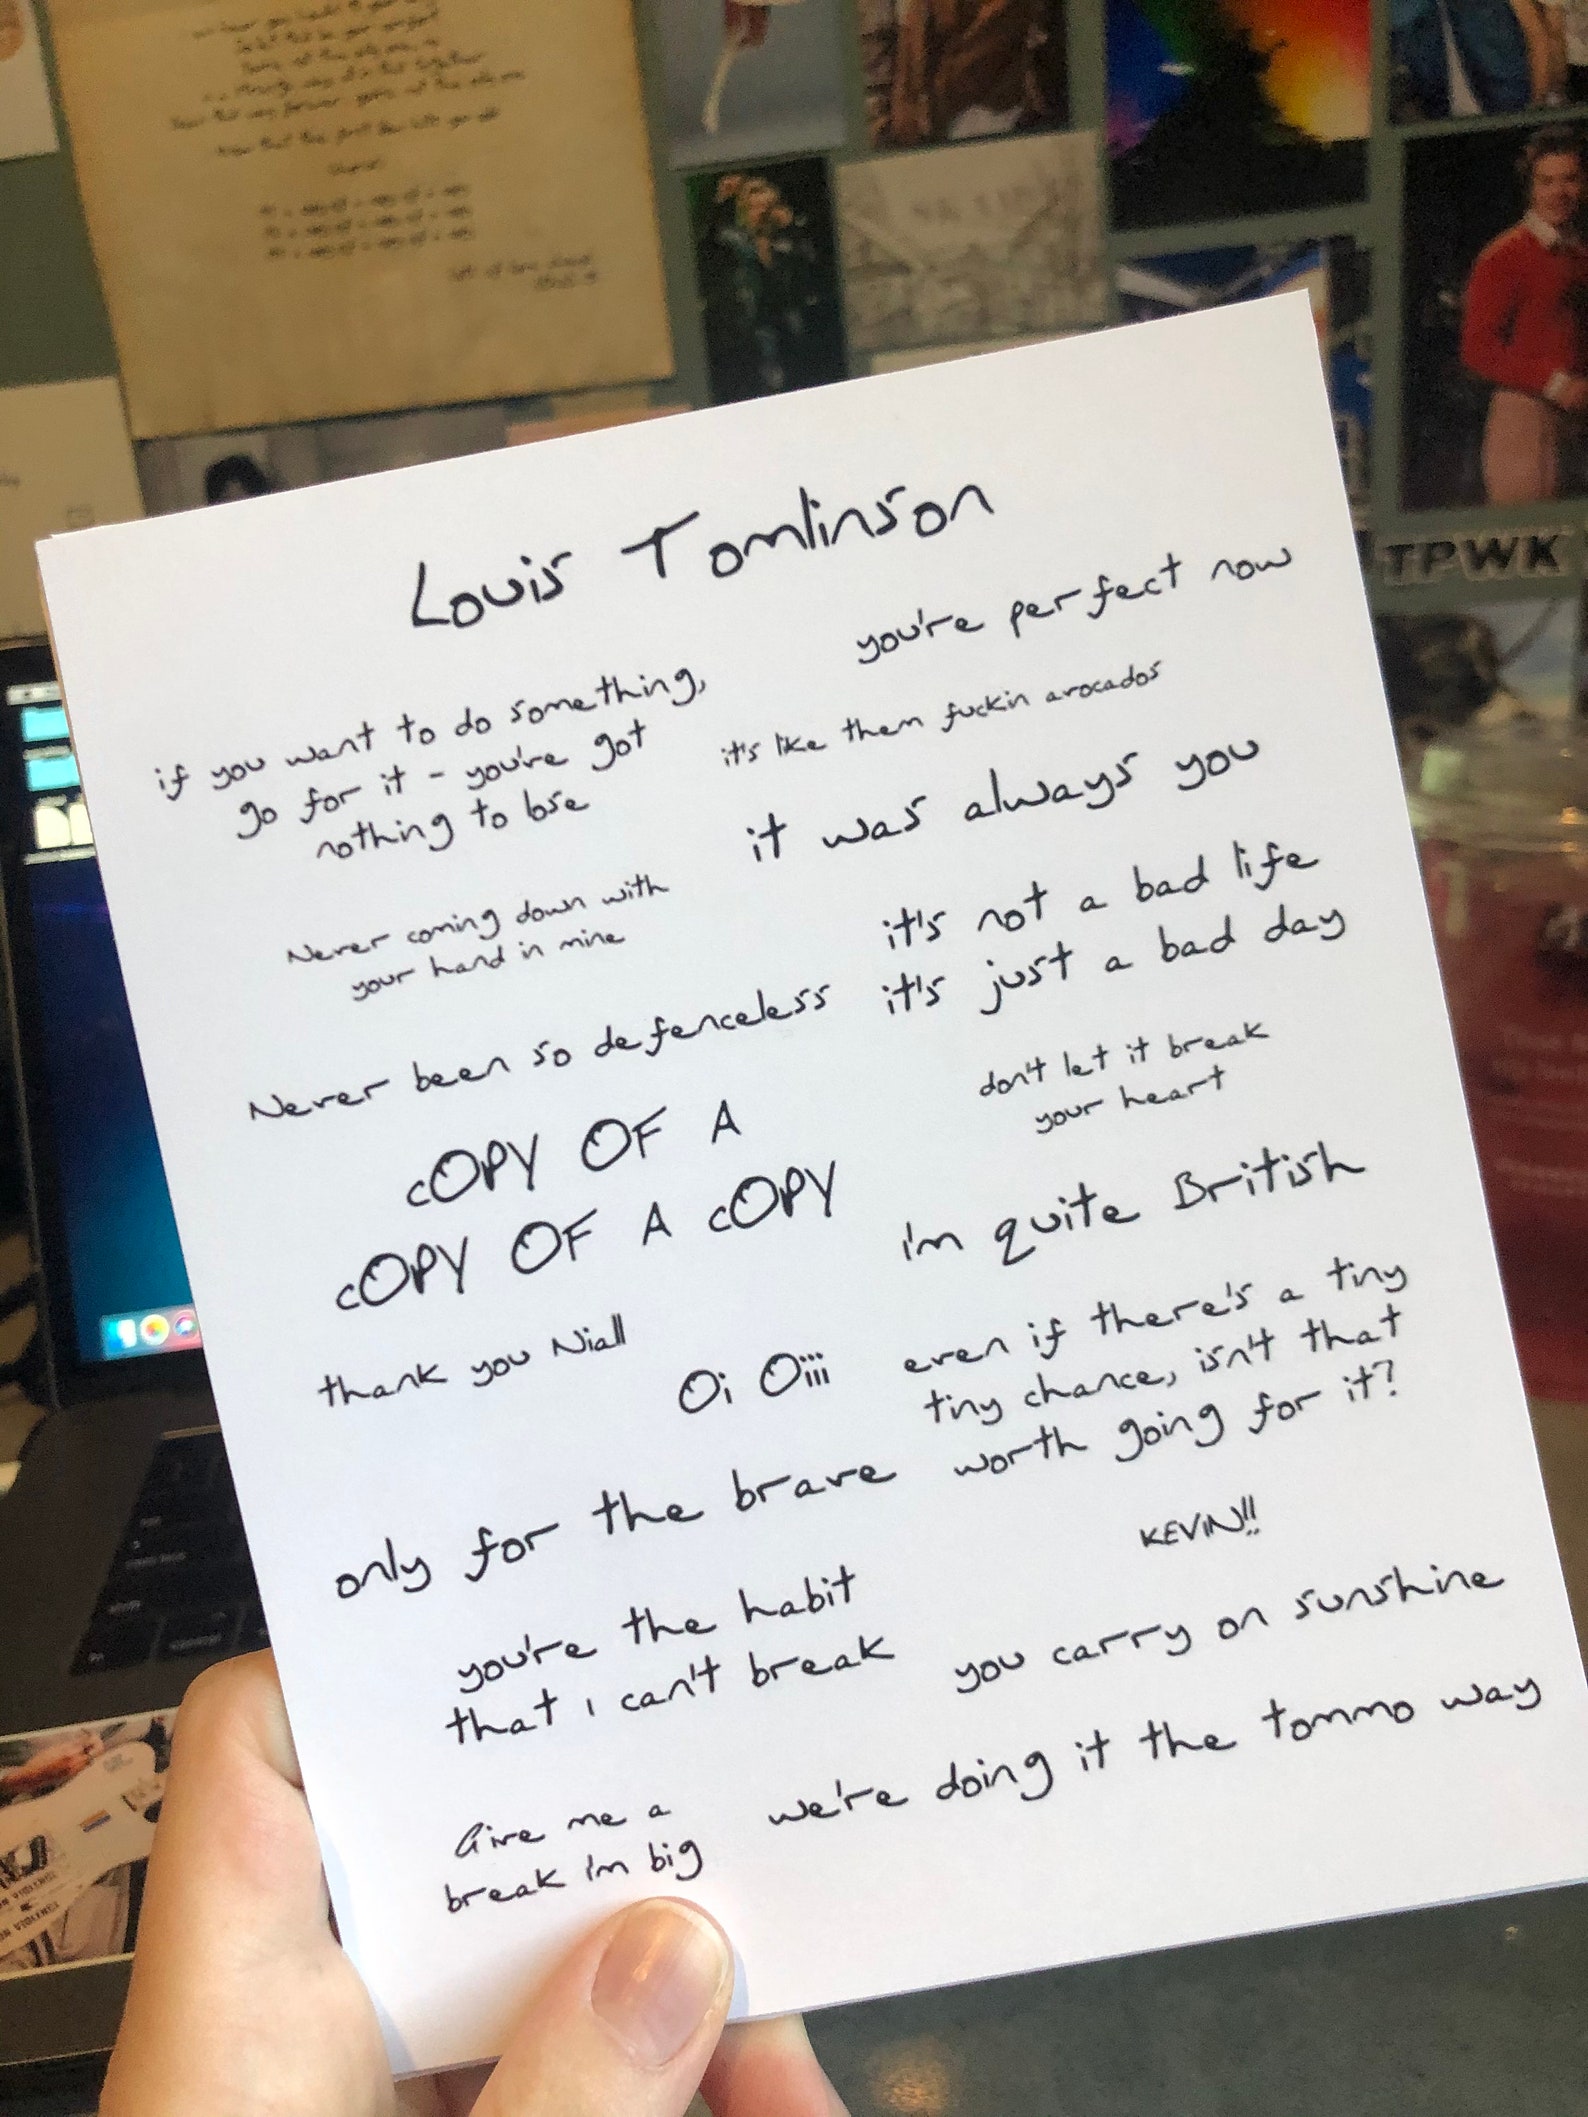 Louis Tomlinson
you're perfect now
if you want to do something,
go for it - you're got
nothing to lose
it's like them fuckin avocados
it was always you
Never coming down with
your hand in mine
it's not a bad life
it's just a bad day
Never been so defenceless
don't let it break
your heart
COPY OF A
COPY OF A COPY
i'm quite British
thank you Niall
Oi Oiii
even if there's a tiny
tiny chance, isn't that
worth going for it?
only for the brave
KEVIN!!
you're the habit
that i can't break
you carry on sunshine
we're doing it the tommo way
Give me a
break i'm big
TPWK